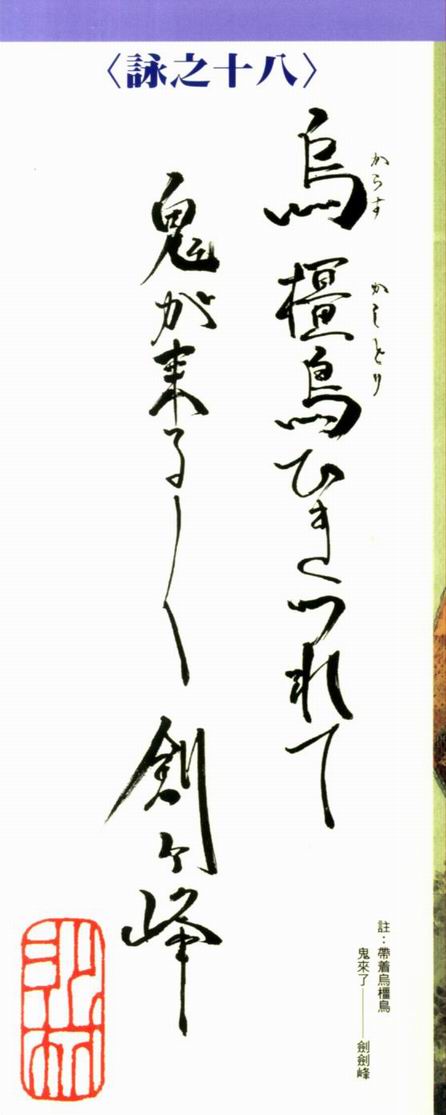 〈詠之十八〉
からす かしどり
烏 橿鳥ひきつれて
鬼が来る〳〵 剣ヶ峰
註：帶着烏橿鳥
鬼來了──劍劍峰